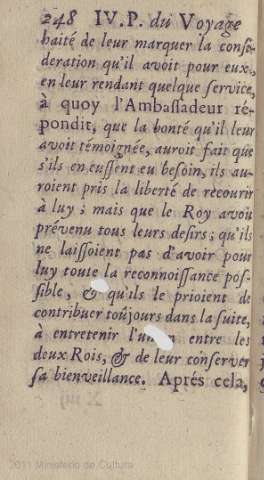 248 IV. P. du Voyage
haité de leur marquer la consi-
deration qu'il avoit pour eux,
en leur rendant quelque service,
à quoy l'Ambassadeur ré-
pondit, que la bonté qu'il leur
avoit témoignée, auroit fait que
s'ils en eussent eu besoin, ils au-
roient pris la liberté de recourir
à luy ; mais que le Roy avoit
prévenu tous leurs desirs ; qu'ils
ne laissoient pas d'avoir pour
luy toute la reconnoissance pos-
sible, & qu'ils le prioient de
contribuer toûjours dans la suite,
à entretenir entre les
deux Rois, & de leur conserver
sa bienveillance. Aprés cela,
2011 Ministerio de Cultura